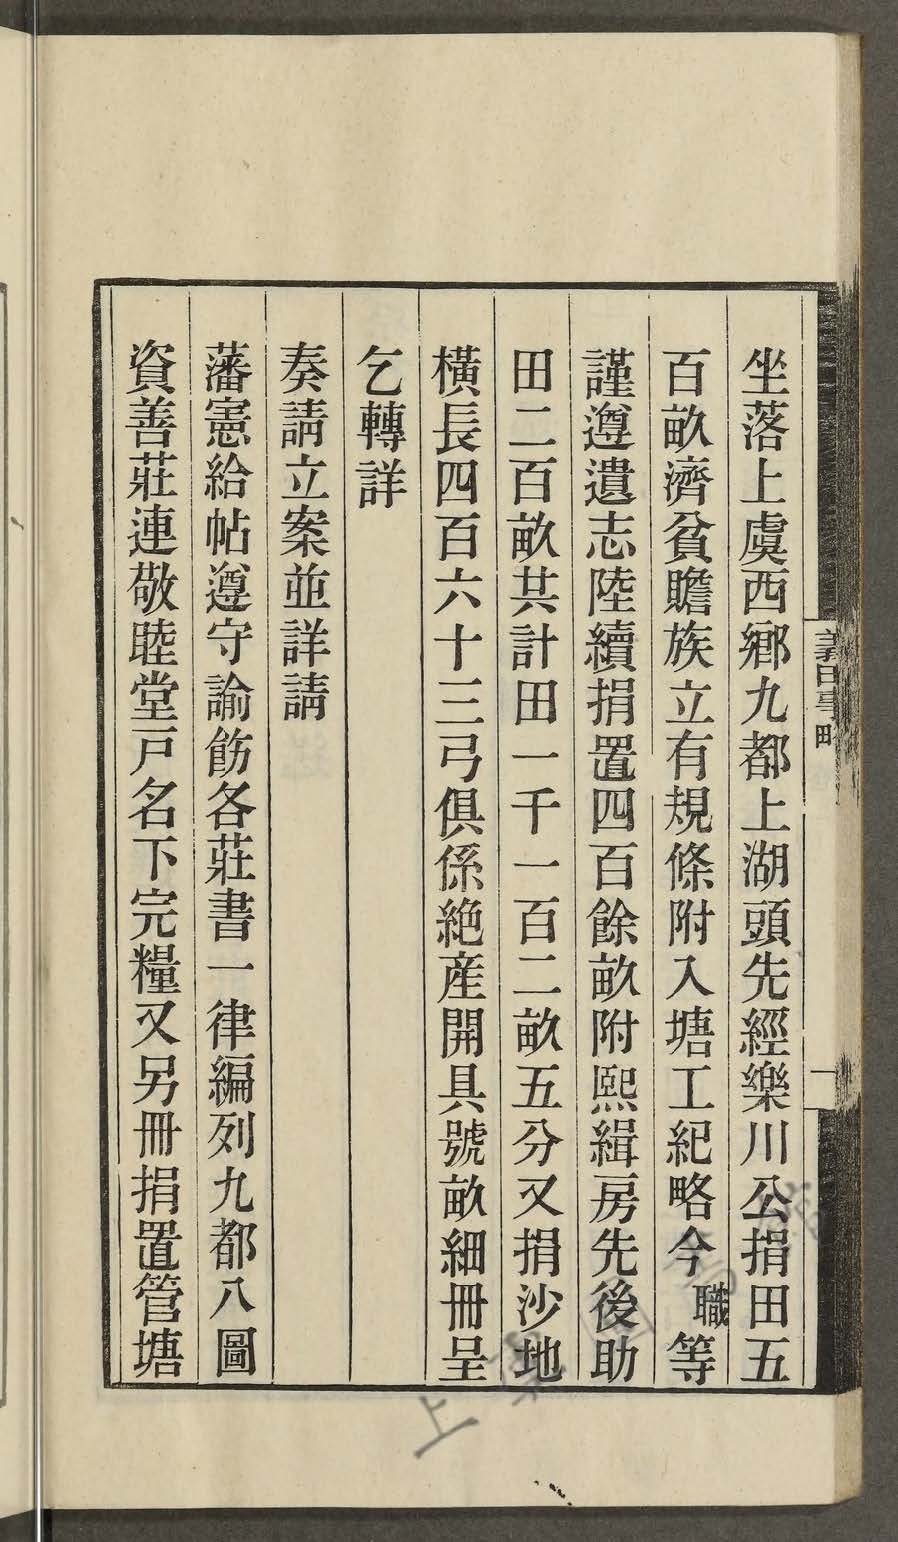 義田事略
一
坐落上虞西鄉九都上湖頭先經樂川公捐田五
百畝濟貧贍族立有規條附入塘工紀略今職等
謹遵遺志陸續捐置四百餘畝附熙緝房先後助
田二百畝共計田一千一百二畝五分又捐沙地
橫長四百六十三弓俱係絶産開具號畝細冊呈
乞轉詳
奏請立案並詳請
藩憲給帖遵守諭飭各莊書一律編列九都八圖
資善莊連敬睦堂戸名下完糧又另冊捐置管塘